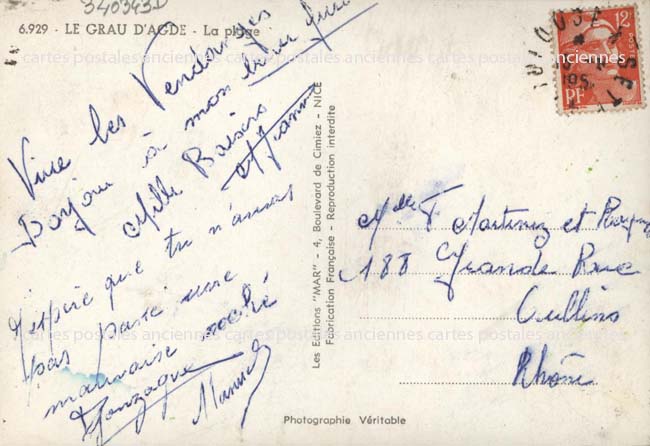 340343D
6.929 - LE GRAU D'AGDE - La plage
Vive les Vendanges
Bonjour à mon
Mille Baisers
J'espère que tu n'auras
pas passé une
mauvaise
Gonzague
Manuel
Les Editions "MAR" - 4, Boulevard de Cimiez - NICE
Fabrication Française - Reproduction interdite
Photographie Véritable
12
POSTES
RF
TOULOUSE
A SETE
195
Melle T Martinez et
188 Grande Rue
Oullins
Rhône
cartes postales anciennes cartes postales anciennes cartes postales anciennes
cartes postales anciennes cartes postales anciennes cartes postales anciennes